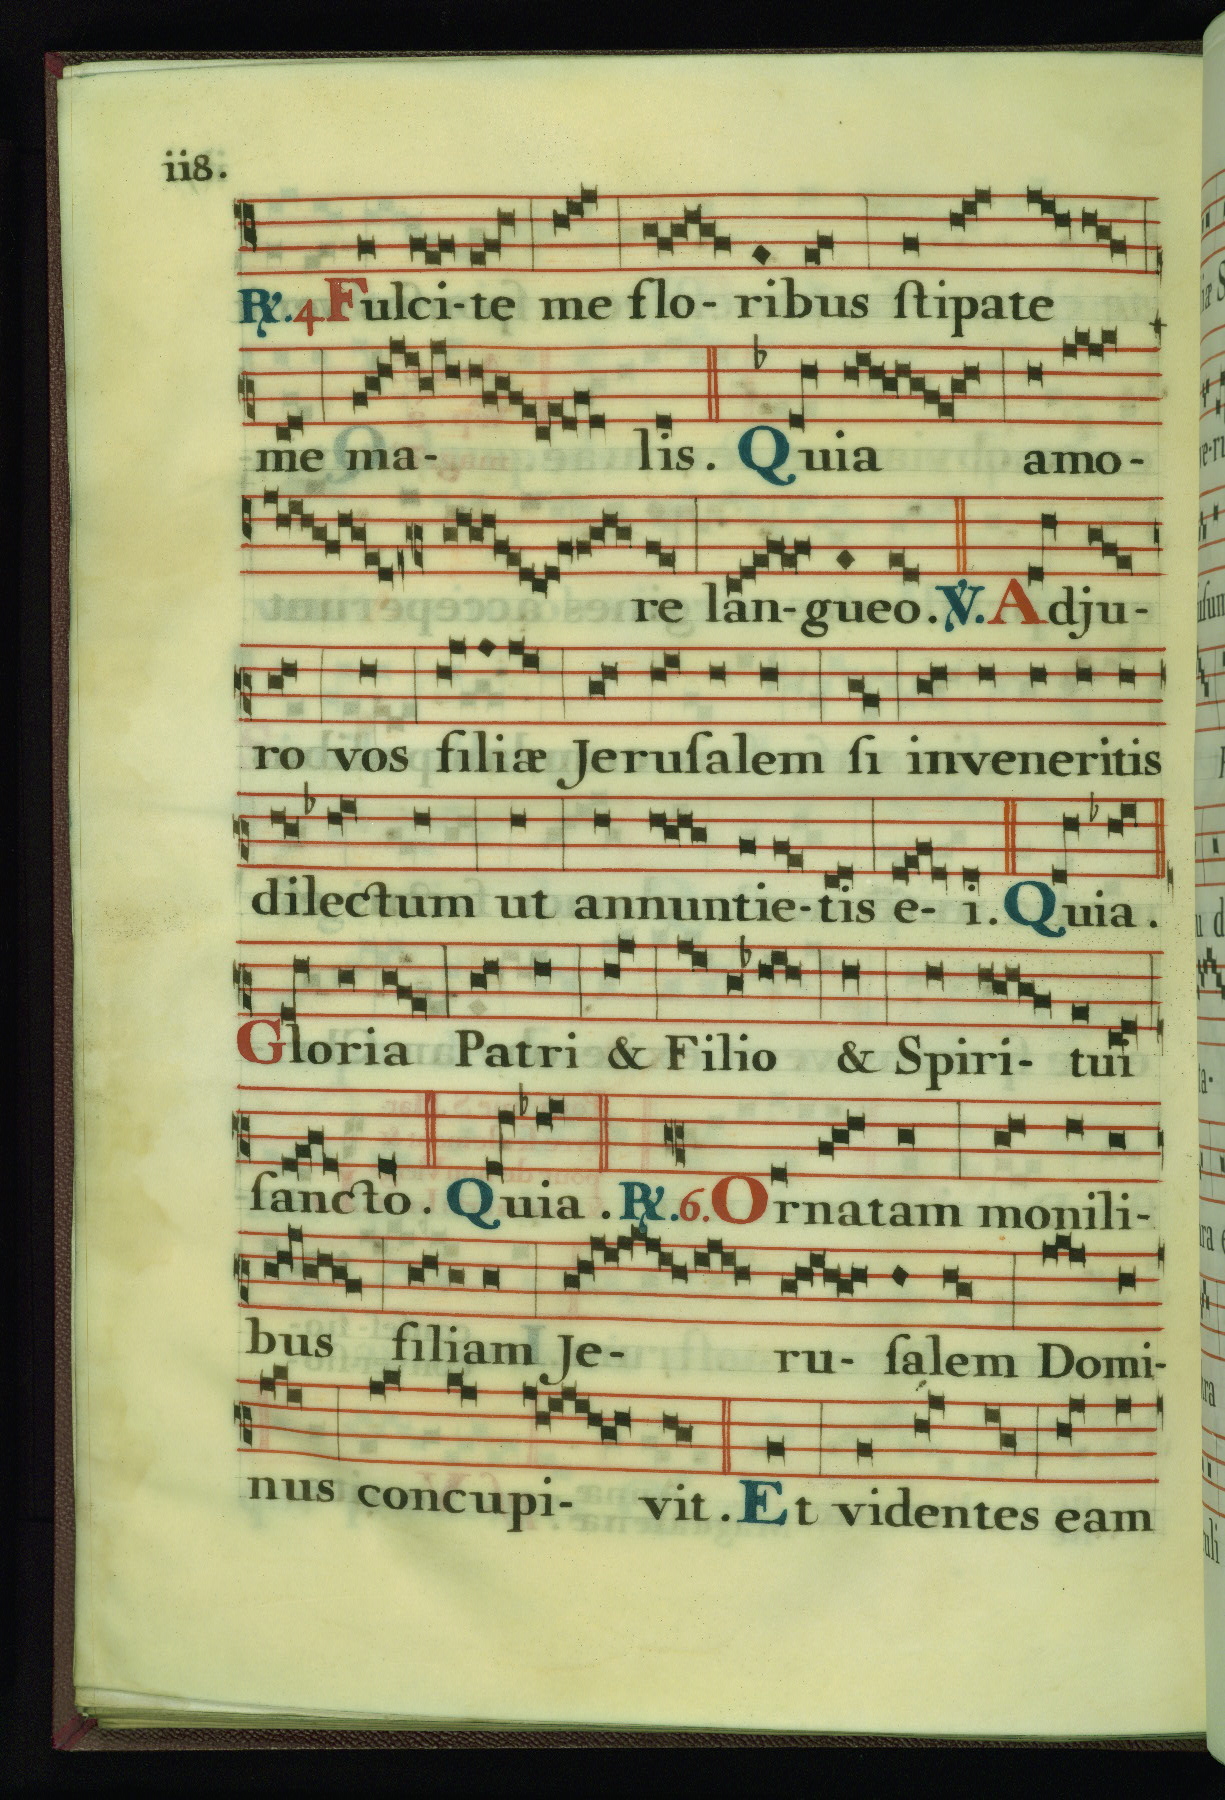 ii8.
℟.4 Fulci-te me flo- ribus ſtipate
me ma- lis. Quia amo-
re lan-gueo. ℣. Adju-
ro vos filiæ Jeruſalem ſi inveneritis
dilectum ut annuntie-tis e- i. Quia.
Gloria Patri & Filio & Spiri- tui
ſancto. Quia. ℟.6. Ornatam monili-
bus filiam Je- ru- ſalem Domi-
nus concupi- vit. Et videntes eam